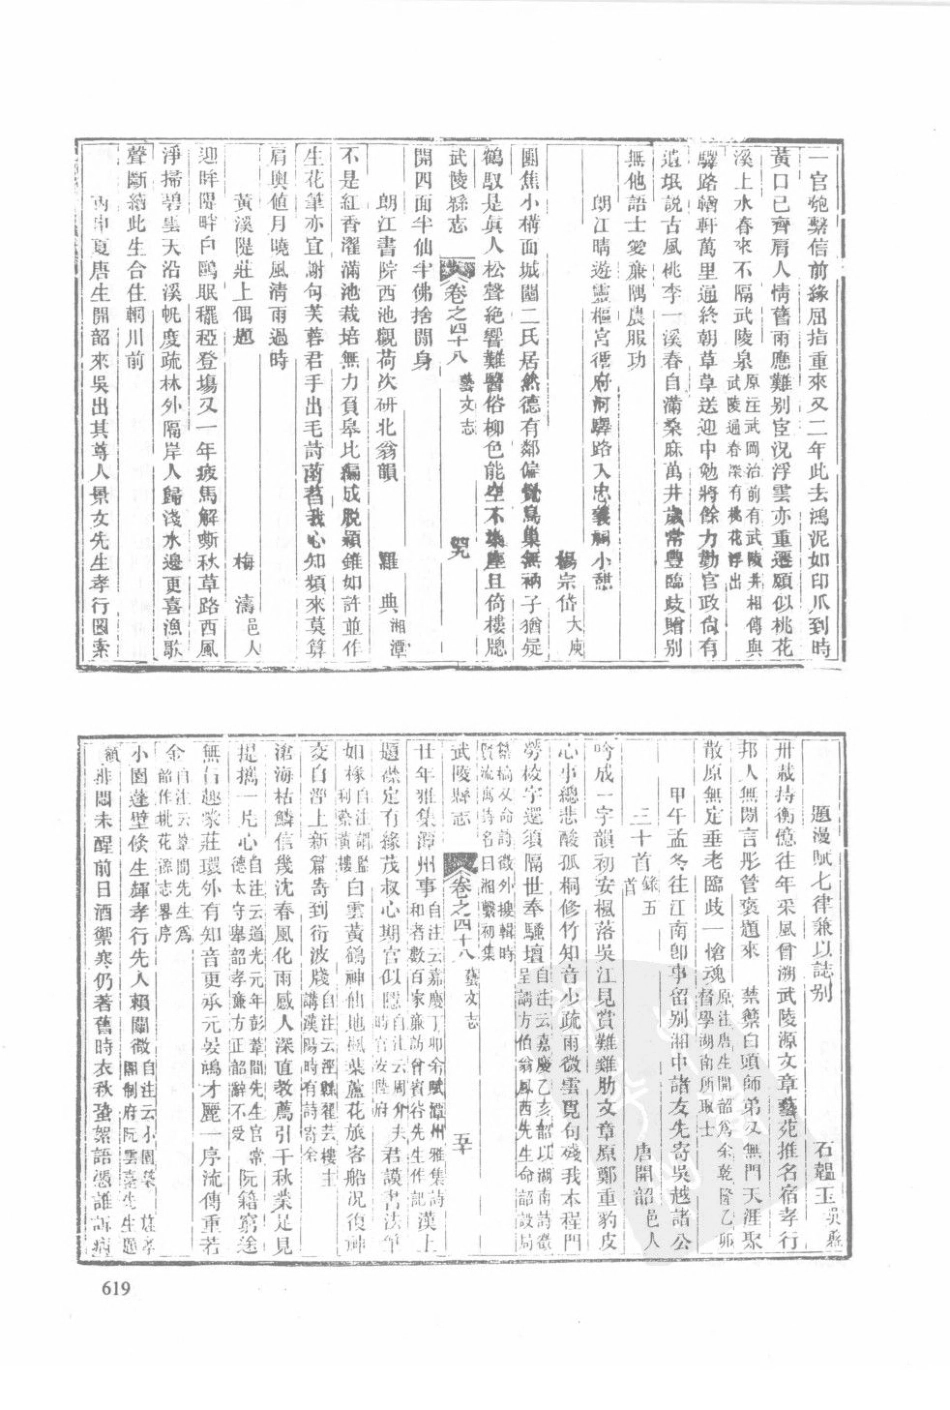 一官匏繫信前緣屈指重來又二年此去鴻泥如印爪到時
黃口已齊肩人情舊雨應難别宦況浮雲亦重遷願似桃花
溪上水春來不隔武陵泉原注武岡治前有武陵井相傳與武陵通春深有桃花浮出
驛路輶軒萬里通終朝草草送迎中勉將餘力勤官政尙有
遺氓說古風桃李一溪春自滿桑麻萬井歲常豐臨歧贈别
無他語士愛廉隅農服功
朗江晴遊靈樞宮德府何驛路入忠義祠小憩
楊宗岱大庾
團焦小構面城闉二氏居然德有鄰偏覺鳥巢無衲子猶疑
鶴馭是眞人松聲絶響難醫俗柳色能空不染塵且倚樓牕
武陵縣志 卷之四十八 藝文志 咒
開四面半仙半佛捨閒身
朗江書院西池觀荷次硏北翁韻 羅典湘潭
不是紅香濯滿池栽培無力負皋比編成脫穎錐如許並作
生花筆亦宜謝句芙蓉君手出毛詩菡萏我心知頻來莫算
肩輿値月曉風清雨過時
黃溪隄莊上偶題 梅濤邑人
迎眸隄畔白鷗眠䆉稏登塲又一年疲馬解嘶秋草路西風
淨掃碧雲天沿溪帆度疏林外隔岸人歸淺水邊更喜漁歌
聲斷續此生合住輞川前
丙申夏唐生開韶來吳出其尊人景女先生孝行圖索
題漫賦七律兼以誌别 石韞玉吳縣
卅載持衡憶往年采風曾溯武陵源文章藝苑推名宿孝行
邦人無閒言彤管褒題來 禁籞白頭師弟又無門天涯聚
散原無定垂老臨歧一愴魂原注唐生開韶爲余乾隆乙卯督學湖南所取士
甲午孟冬往江南卽事留别湘中諸友先寄吳越諸公
三十首錄五首 唐開韶邑人
吟成一字韻初安楓落吳江見賞難雞肋文章原鄭重豹皮
心事總悲酸孤桐修竹知音少疏雨微雲覓句殘我本程門
勞校字還須隔世奉騷壇自注云嘉慶乙亥韶以湖南詩徵呈請方伯翁鳳西先生命韶設局
纂稿又命詩徵外搜輯時賢流寓詩名曰湘繫初集
武陵縣志 卷之四十八 藝文志 五十
廿年雅集潭州事自注云嘉慶丁卯余賦潭州雅集詩和者數百家嚴訪曾賓谷先生作記漢上
題襟定有緣茂叔心期官似隱自注云周介夫時官安陸府君謨書法筆
如椽自注韶監利黎漢樓白雲黃鶴神仙地楓葉蘆花旅客船況復神
交白雪上新篇寄到衍波牋自注云涇縣翟芸樓主講漢陽時有詩寄余
滄海枯鱗信幾沈春風化雨感人深直教薦引千秋業足見
提攜一片心自注云道光元年彭葦間先生官常德太守舉韶孝廉方正韶辭不受阮籍窮途
無白趣蒙莊環外有知音更承元晏鴻才麗一序流傳重若
金自注云葦間先生爲韶作桃花源志畧序
小園蓬壁倏生輝孝行先人賴闡微自注云小園榮旌孝圖制府阮雲臺先生題
額排悶未醒前日酒禦寒仍著舊時衣秋蛩絮語憑誰訴病
619